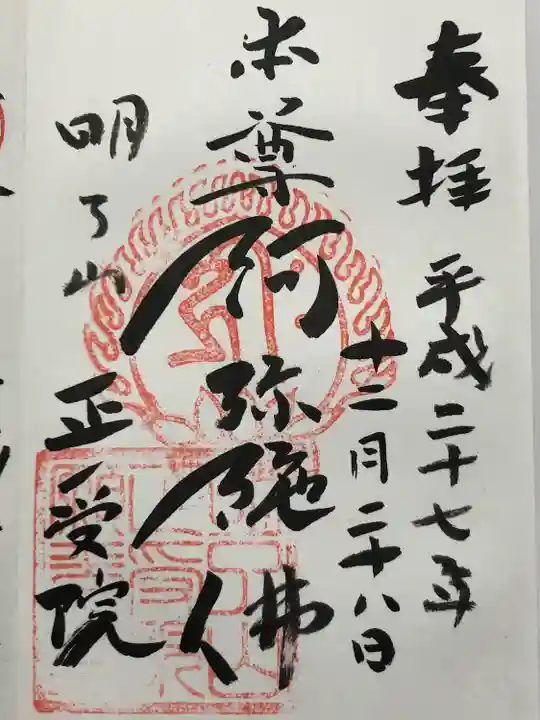 奉拝 平成二十七年
十二月二十八日
本尊 阿弥陀佛
明了山
正受院